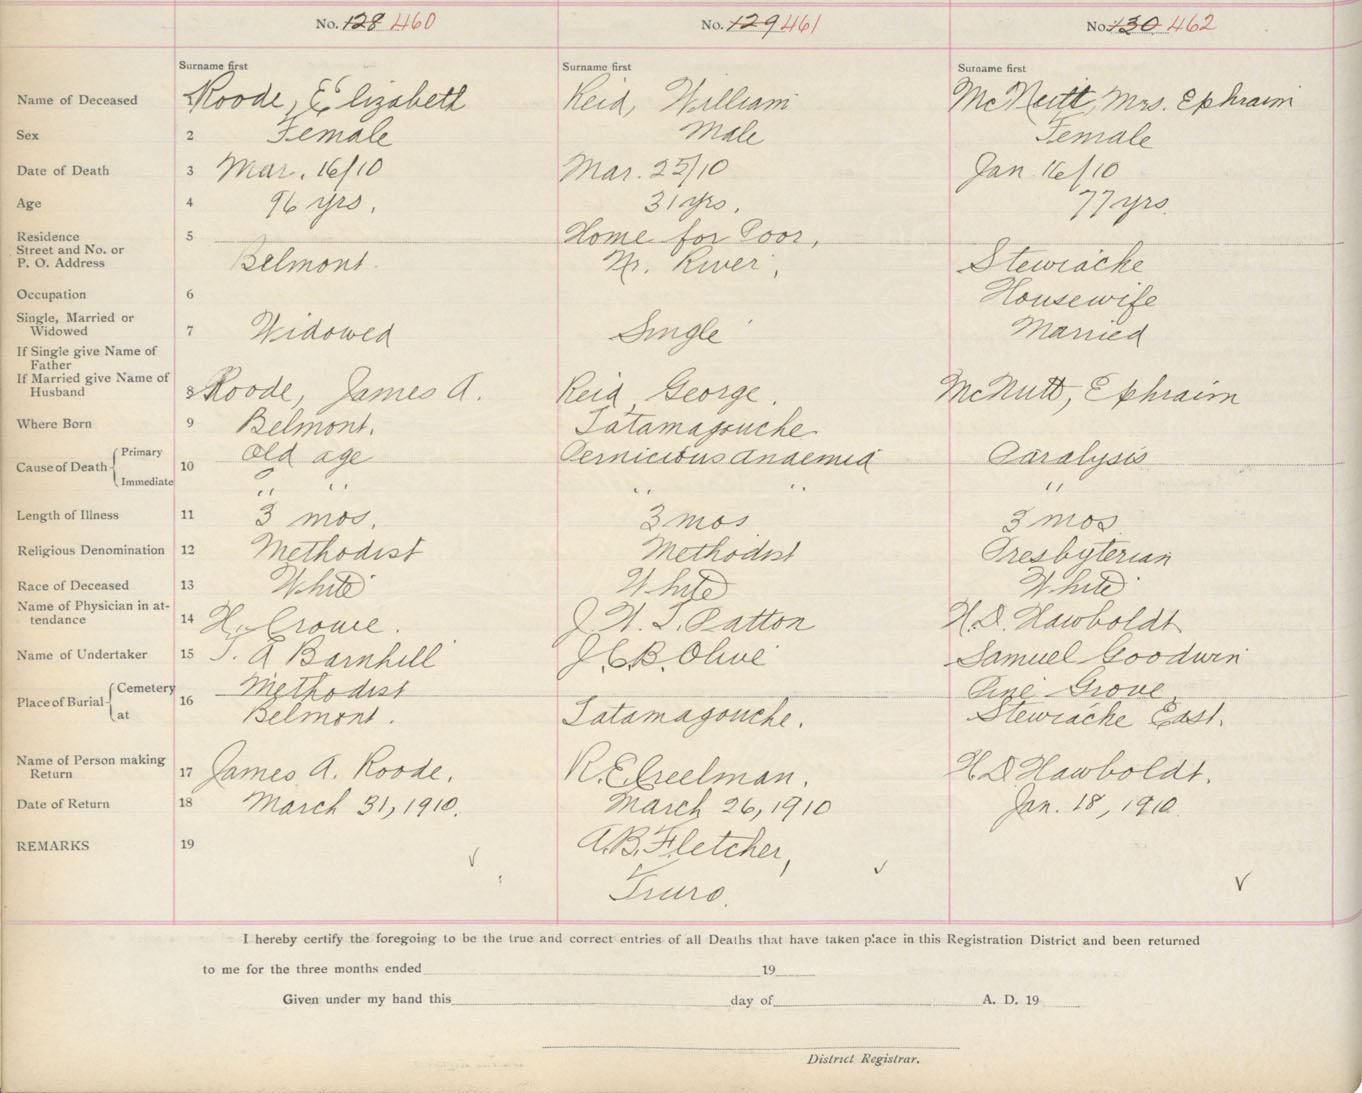 No. 128 460 No. 129 461 No. 130 462
Surname first Surname first Surname first
Name of Deceased 1 Roode, Elizabeth Reid, William McNutt, Mrs. Ephraim
Sex 2 Female Male Female
Date of Death 3 Mar. 16/10 Mar. 25/10 Jan 16/10
Age 4 96 yrs. 31 yrs. 77 yrs.
Residence 5 Home for Poor,
Street and No. or
P. O. Address Belmont. Nr. River, Stewiacke
Occupation 6 Housewife
Single, Married or
Widowed 7 Widowed Single Married
If Single give Name of
Father
If Married give Name of
Husband 8 Roode, James A. Reid, George. McNutt, Ephraim
Where Born 9 Belmont. Tatamagouche
Cause of Death Primary 10 Old age Pernicious anaemia Paralysis
Immediate " " " " "
Length of Illness 11 3 mos. 3 mos 3 mos
Religious Denomination 12 Methodist Methodist Presbyterian
Race of Deceased 13 White White White
Name of Physician in at-
tendance 14 H. Crowe. J. W. T. Patton H. D. Hawboldt
Name of Undertaker 15 T. A Barnhill J. C. B. Olive Samuel Goodwin
Place of Burial Cemetery 16 Methodist Pine Grove,
at Belmont. Tatamagouche. Stewiacke East.
Name of Person making
Return 17 James A. Roode. R. E. Creelman. H. D. Hawboldt.
Date of Return 18 March 31, 1910. March 26, 1910 Jan. 18, 1910.
REMARKS 19 A. B. Fletcher,
Truro.
I hereby certify the foregoing to be the true and correct entries of all Deaths that have taken place in this Registration District and been returned
to me for the three months ended 19
Given under my hand this day of A. D. 19
District Registrar.